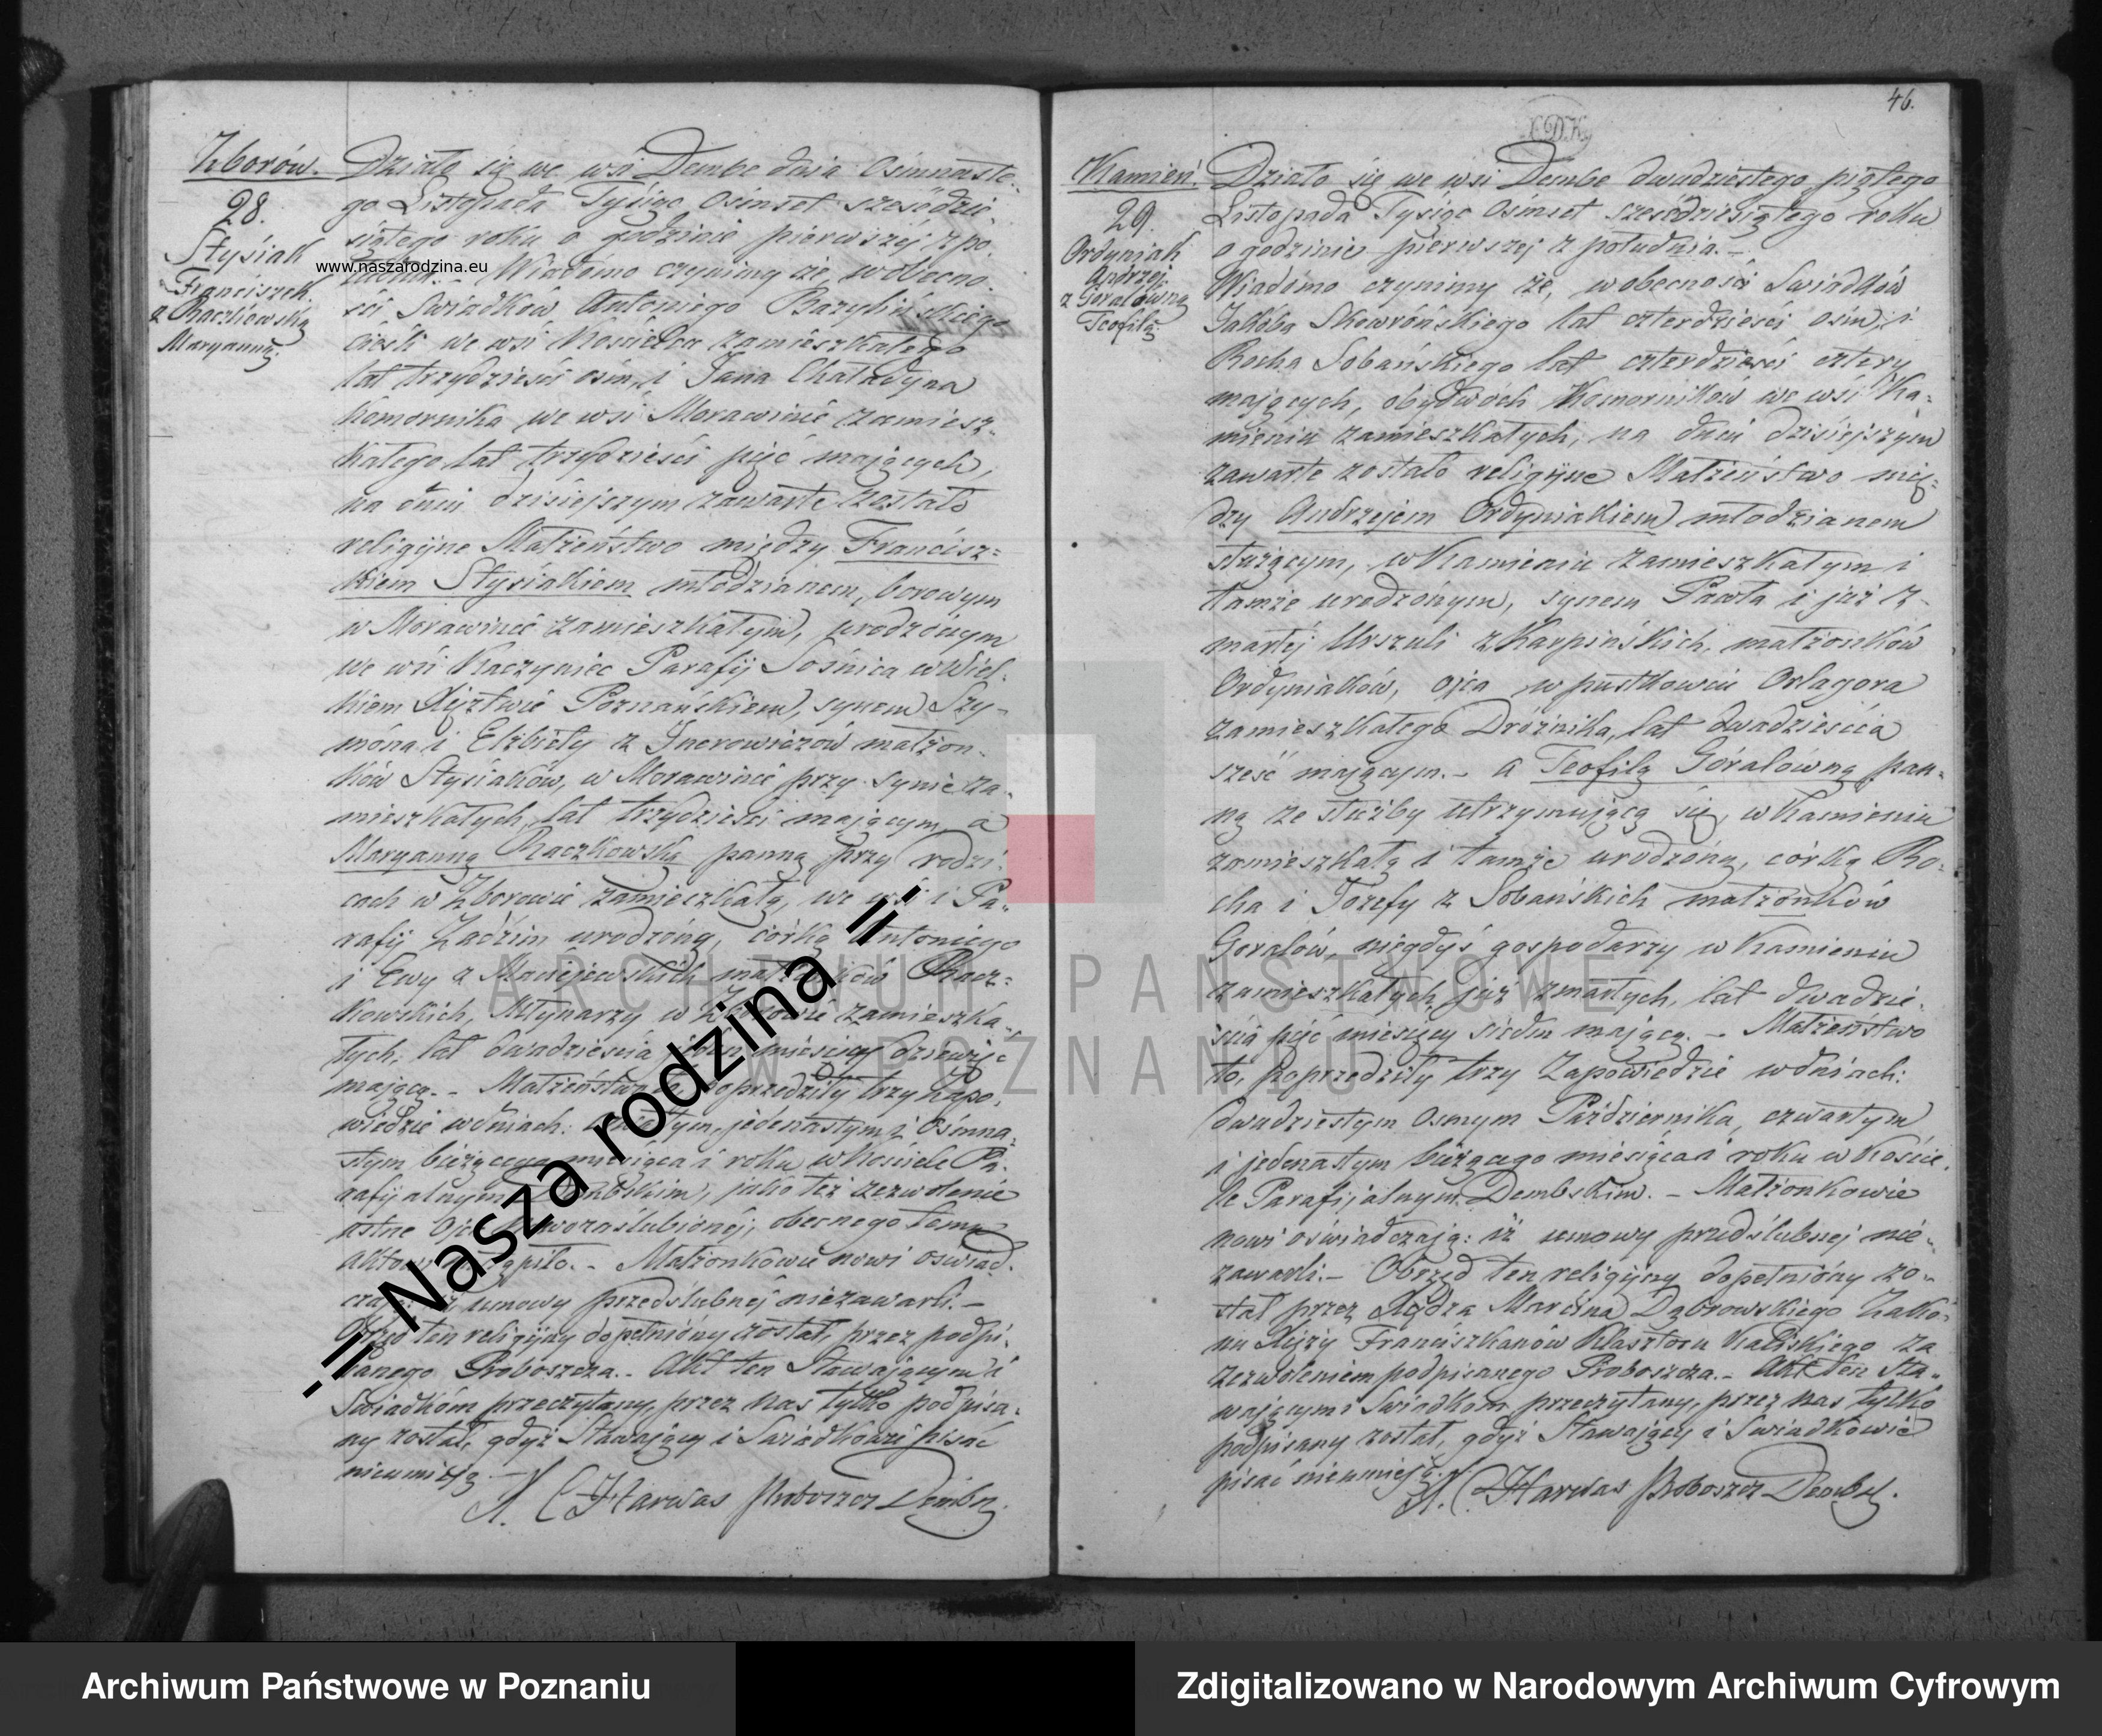 Zborów.
28.
Stysiak
Franciszek
z Raczkowską
Maryanną.
Działo się we wsi Dembe dnia Osimnaste-
go Listopada Tysiąc Osimset sześćdzie-
siątego roku o godzinie pierwszej z po-
łudnia. – Wiadomo czynimy że, w obecno-
ści Swiadków Antoniego Bazylińskiego
cieśli we wsi Kościelca zamieszkałego
lat trzydzieści osim, i Jana Chaładyna
Komornika we wsi Morawinie zamiesz-
kałego lat trzydzieści pięć mających,
na dniu dzisiejszym zawarte zostało
religijne Małżeństwo między Francisz=
kiem Stysiakiem młodzianem, borowym
w Morawinie zamieszkałym, urodzonym
we wsi Kaczyniec Parafij Sośnica w Wiel-
kiem Xięztwie Poznańskiem, synem Szy-
móna i Elżbiety z małżon-
ków Stysiaków, w Morawinie przy synie za-
mieszkałych, lat trzydzieści mającym, a
Maryanną Raczkowską panną przy rodzi-
cach w Zborowie zamieszkałą, we wsi i Pa-
rafij Zadzim urodzoną, córką Antoniego
i Ewy z Maciejewskich małżonków Racz=
kowskich, Młynarzy w Zborowie zamieszka-
łych, lat dwadzieścia jeden miesięcy dziewięć
mającą. – Małżeństwo to poprzedziły trzy Zapo-
wiedzie w dniach: czwartym, jedenastym i Osimna-
stym bieżącego miesiąca i roku w Kościele Pa-
rafijalnym Dembskim, jako też zezwolenie
ustne Ojca nowozaślubionéj, obecnego temu
Aktowi nastąpiło. – Małżonkowie nowi oświad-
czają: iż umowy przedślubnéj niezawarli. –
Obrzęd ten religijny dopełniony został, przez podpi-
sanego Proboszcza. – Akt ten Stawającym i
Swiadkóm przeczytany, przez nas tylko podpisa-
ny został, gdyż Stawający i Swiadkowie pisać
nieumieją. –
X. Harwas Proboszcz Dembsk.
46.
X.D.K.
Kamień
29.
Ordyniak
Andrzej
z Góralówną
Teofilą
Działo się we wsi Dembe dwudziestego piątego
Listopada Tysiąc Osimset sześćdziesiątego roku
o godzinie pierwszej z południa. –
Wiadomo czynimy że, w obecności Swiadków
Jakóba Skowrońskiego lat czterdzieści osim, i
Rocha Sobańskiego lat czterdzieści cztery
mających, obydwóch Komorników we wsi Ka-
mieniu zamieszkałych, na dniu dzisiejszym
zawarte zostało religijne Małżeństwo mię=
dzy Andrzejem Ordyniakiem młodzianem
służącym, w Kamieniu zamieszkałym i
tamże urodzonym, synem Pawła i już z-
marłéj Urszuli z Karpińskich, małżonków
Ordyniaków, ojca w pustkowiu Oslagora
zamieszkałego Dróżnika, lat dwadzieścia
sześć mającym. – a Teofilą Góralówną pan-
ną ze służby utrzymującą się, w Kamieniu
zamieszkałą i tamże urodzoną, córką Ro-
cha i Józefy z Sobańskich małżonków
Goralów, niegdyś gospodarzy w Kamieniu
zamieszkałych już zmarłych, lat dwadzie-
ścia pięć miesięcy siedm mającą. – Małżeństwo
to, poprzedziły trzy Zapowiedzie w dniach:
dwudziestym Osmym Października, czwartym
i jedenastym bieżącego miesiąca i roku w Koście-
le Parafijalnym Dembskim. – Małżonkowie
nowi oświadczają: iż umowy przedślubnej nie-
zawarli. – Obrzęd ten religijny dopełniony zo-
stał przez Xiędza Marcina Dąbrowskiego Zako-
nu Xięży Franciszkanów Klasztoru Kaliskiego za
zezwoleniem podpisanego Proboszcza. – Akt ten Sta-
wającym i Swiadkom przeczytany, przez nas tylko
podpisany został, gdyż Stawający i Swiadkowie
pisać nieumieją.
X. Harwas Proboszcz Dembsk.
www.naszarodzina.eu
-=| Nasza rodzina |=-
ARCHIWUM PAŃSTWOWE
W POZNANIU
Archiwum Państwowe w Poznaniu
Zdigitalizowano w Narodowym Archiwum Cyfrowym